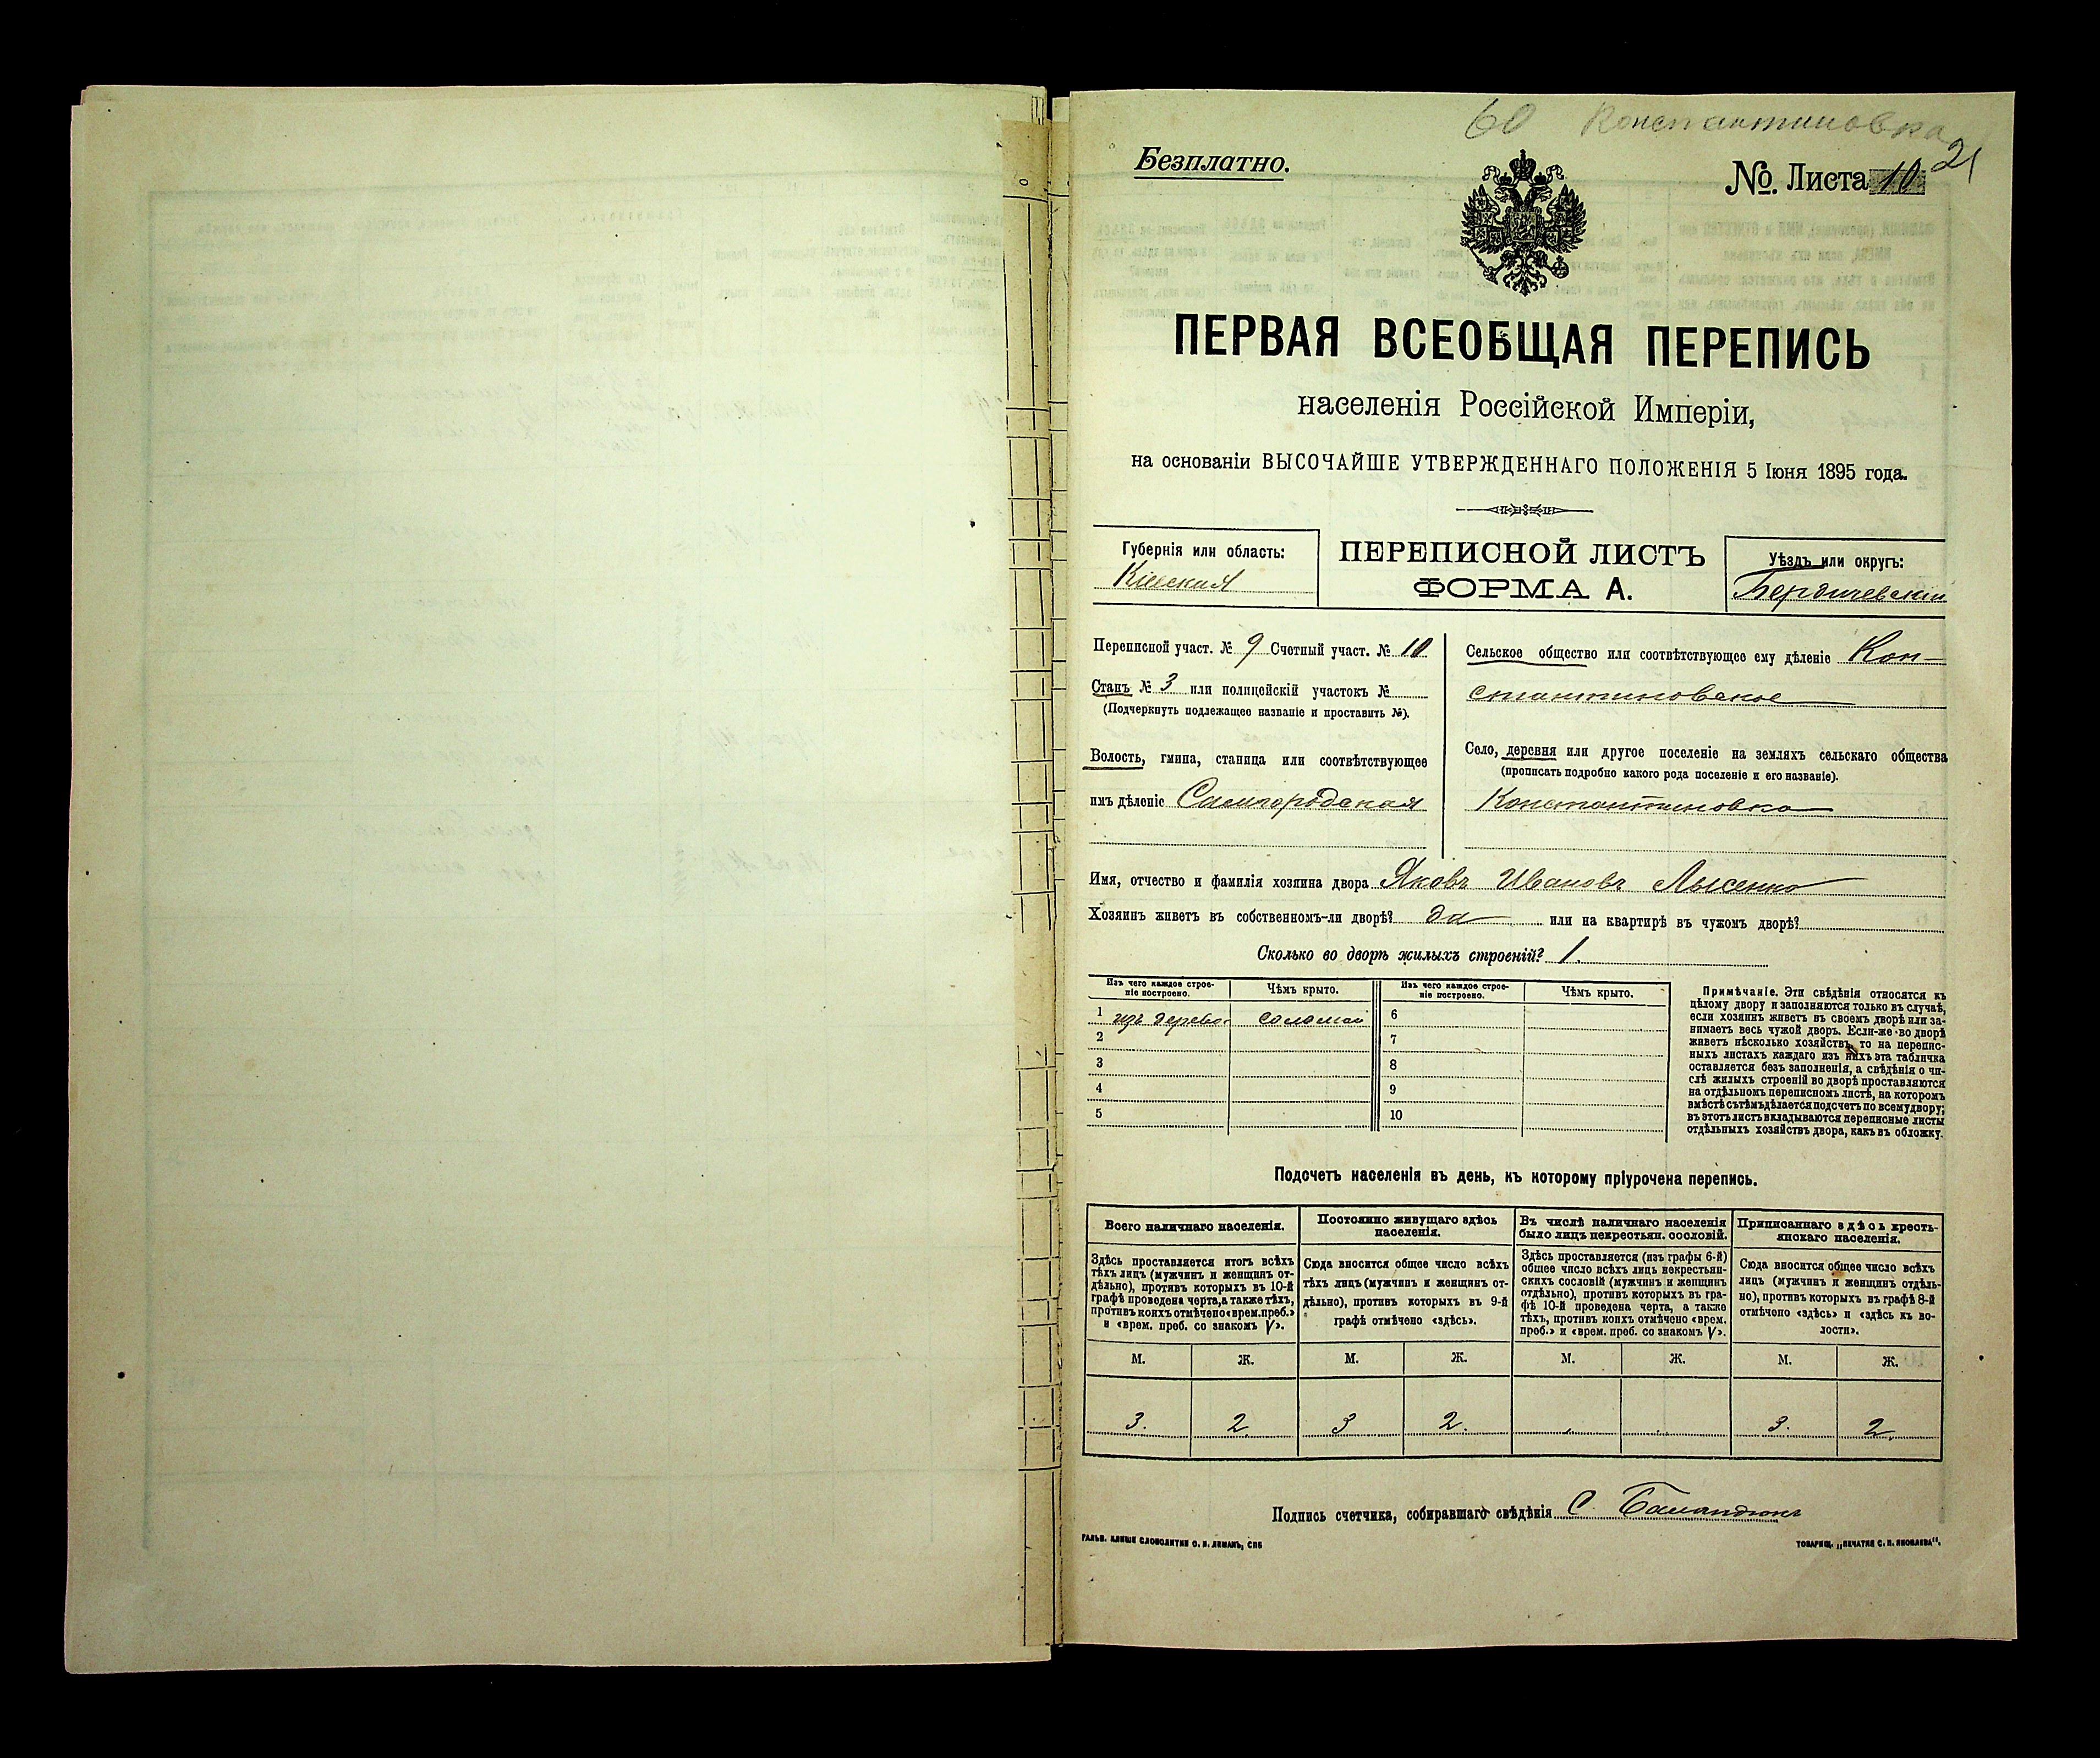 60 Константиновка
21
Безплатно.
№ Листа 10
ПЕРВАЯ ВСЕОБЩАЯ ПЕРЕПИСЬ
населенія Россійской Имперіи,
на основаніи ВЫСОЧАЙШЕ УТВЕРЖДЕННАГО ПОЛОЖЕНІЯ 5 Іюня 1895 года.
Губернія или область:
Кіевская
ПЕРЕПИСНОЙ ЛИСТЪ
ФОРМА А.
Уѣздъ или округъ:
Бердичевскій
Переписной участ. № 9 Счетный участ. № 10
Станъ № 3 или полицейскій участокъ №
(Подчеркнуть подлежащее названіе и проставить №).
Волость, гмина, станица или соотвѣтствующее
имъ дѣленіе Самгородская
Сельское общество или соотвѣтствующее ему дѣленіе Кон-
стантиновское
Село, деревня или другое поселеніе на земляхъ сельскаго общества
(прописать подробно какого рода поселеніе и его названіе).
Константиновка
Имя, отчество и фамилія хозяина двора Яковъ Ивановъ Лысенко
Хозяинъ живетъ въ собственномъ-ли дворѣ? да или на квартирѣ въ чужомъ дворѣ?
Сколько во дворѣ жилыхъ строеній? 1.
Изъ чего каждое строе-
ніе построено.
Чѣмъ крыто.
Изъ чего каждое строе-
ніе построено.
Чѣмъ крыто.
1 изъ дерева соломой 6
2 7
3 8
4 9
5 10
Примѣчаніе. Эти свѣдѣнія относятся къ
цѣлому двору и заполняются только въ случаѣ,
если хозяинъ живетъ въ своемъ дворѣ или за-
нимаетъ весь чужой дворъ. Если-же во дворѣ
живетъ нѣсколько хозяйствъ, то на перепис-
ныхъ листахъ каждаго изъ нихъ эта табличка
оставляется безъ заполненія, а свѣдѣнія о чи-
слѣ жилыхъ строеній во дворѣ проставляются
на отдѣльномъ переписномъ листѣ, на которомъ
вмѣстѣ съ тѣмъ дѣлается подсчетъ по всему двору;
въ этотъ листъ вкладываются переписные листы
отдѣльныхъ хозяйствъ двора, какъ въ обложку.
Подсчетъ населенія въ день, къ которому пріурочена перепись.
Всего наличнаго населенія.
Здѣсь проставляется итогъ всѣхъ
тѣхъ лицъ (мужчинъ и женщинъ от-
дѣльно), противъ которыхъ въ 10-й
графѣ проведена черта, а также тѣхъ,
противъ коихъ отмѣчено «врем. преб.»
и «врем. преб. со знакомъ V».
Постоянно живущаго здѣсь
населенія.
Сюда вносится общее число всѣхъ
тѣхъ лицъ (мужчинъ и женщинъ от-
дѣльно), противъ которыхъ въ 9-й
графѣ отмѣчено «здѣсь».
Въ числѣ наличнаго населенія
было лицъ некрестьян. сословій.
Здѣсь проставляется (изъ графы 6-й)
общее число всѣхъ лицъ некрестьян-
скихъ сословій (мужчинъ и женщинъ
отдѣльно), противъ которыхъ въ гра-
фѣ 10-й проведена черта, а также
тѣхъ, противъ коихъ отмѣчено «врем.
преб.» и «врем. преб. со знакомъ V».
Приписаннаго здѣсь кресть-
янскаго населенія.
Сюда вносится общее число всѣхъ
лицъ (мужчинъ и женщинъ отдѣль-
но), противъ которыхъ въ графѣ 8-й
отмѣчено «здѣсь» и «здѣсь къ во-
лости».
М. Ж. М. Ж. М. Ж. М. Ж.
3. 2 3 2. 3. 2.
Подпись счетчика, собиравшаго свѣдѣнія С.
ГАЛЬВ. КЛИШЕ СЛОВОЛИТНИ О. И. ЛЕМАНЪ, СПБ
ТОВАРИЩ. „ПЕЧАТНЯ С. П. ЯКОВЛЕВА".